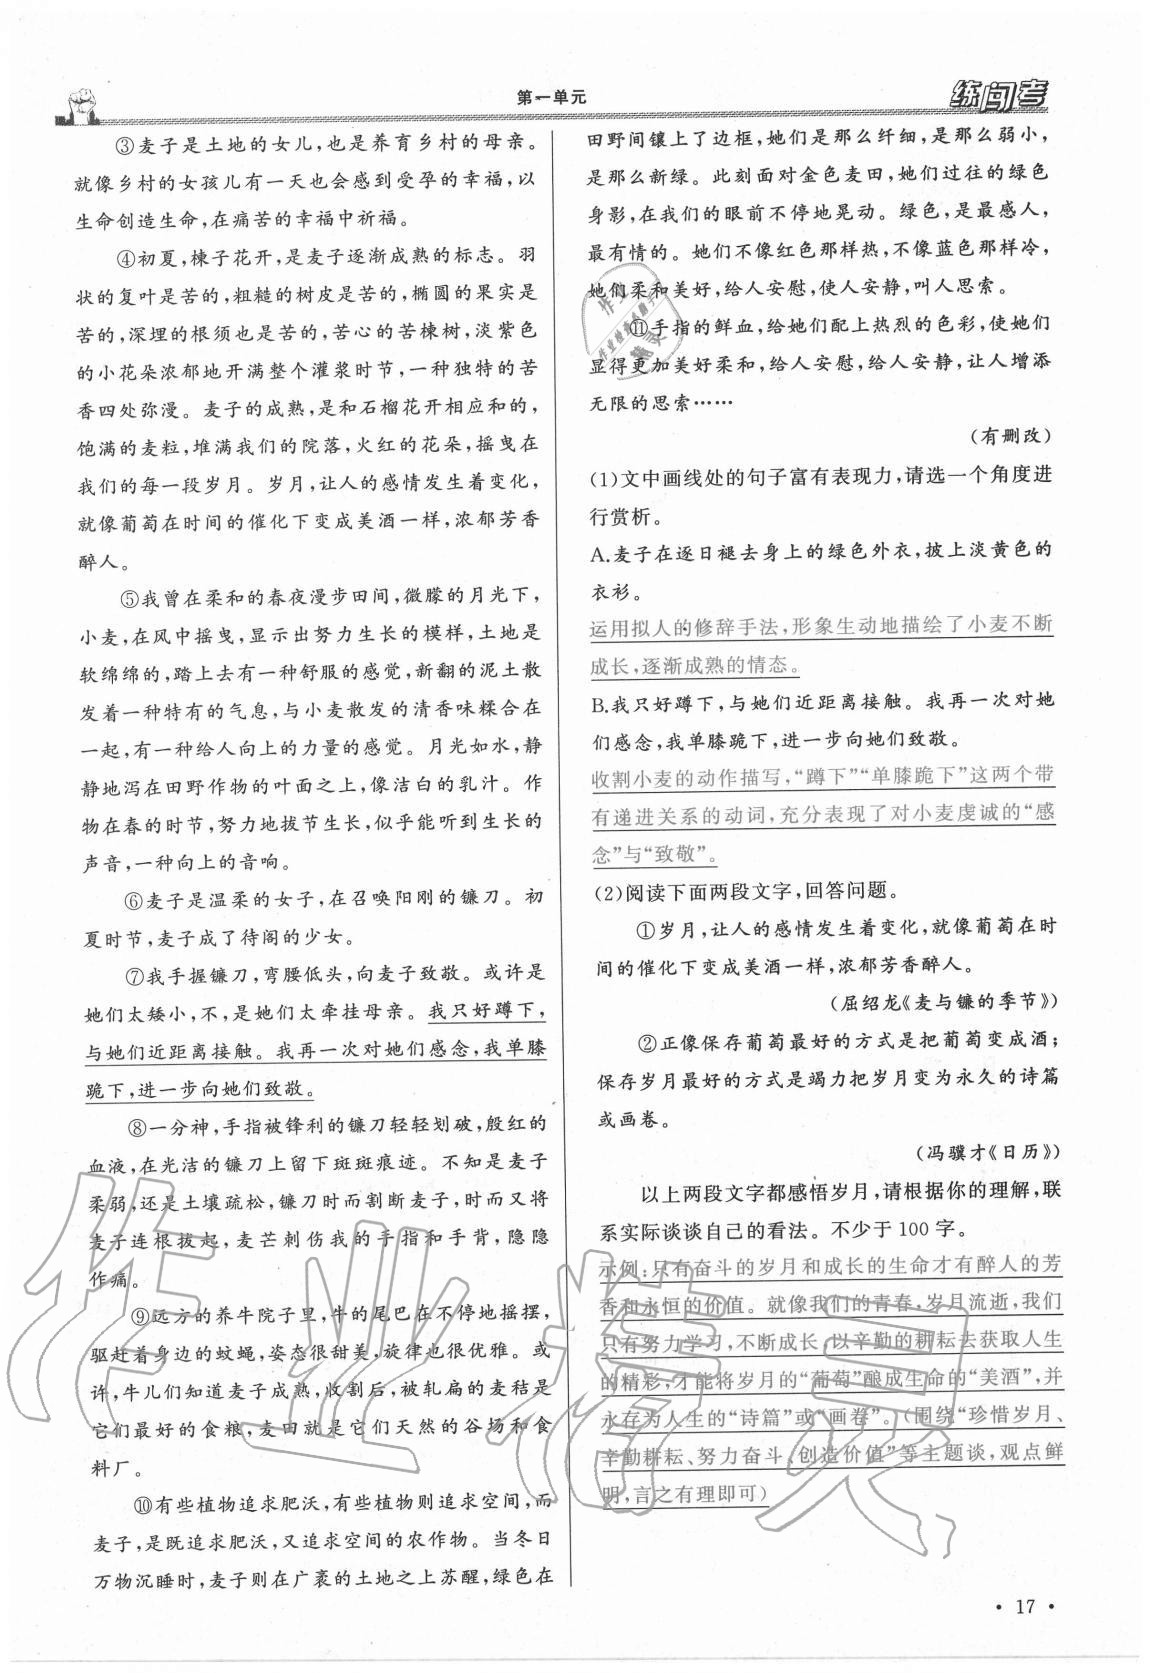 第一单元
练闯考
③麦子是土地的女儿,也是养育乡村的母亲。
就像乡村的女孩儿有一天也会感到受孕的幸福,以
生命创造生命,在痛苦的幸福中祈福。
④初夏,楝子花开,是麦子逐渐成熟的标志。羽
状的复叶是苦的,粗糙的树皮是苦的,椭圆的果实是
苦的,深埋的根须也是苦的,苦心的苦楝树,淡紫色
的小花朵浓郁地开满整个灌浆时节,一种独特的苦
香四处弥漫。麦子的成熟,是和石榴花开相应和的,
饱满的麦粒,堆满我们的院落,火红的花朵,摇曳在
我们的每一段岁月。岁月,让人的感情发生着变化,
就像葡萄在时间的催化下变成美酒一样,浓郁芳香
醉人。
⑤我曾在柔和的春夜漫步田间,微朦的月光下,
小麦,在风中摇曳,显示出努力生长的模样,土地是
软绵绵的,踏上去有一种舒服的感觉,新翻的泥土散
发着一种特有的气息,与小麦散发的清香味糅合在
一起,有一种给人向上的力量的感觉。月光如水,静
静地泻在田野作物的叶面之上,像洁白的乳汁。作
物在春的时节,努力地拔节生长,似乎能听到生长的
声音,一种向上的音响。
⑥麦子是温柔的女子,在召唤阳刚的镰刀。初
夏时节,麦子成了待阁的少女。
⑦我手握镰刀,弯腰低头,向麦子致敬。或许是
她们太矮小,不,是她们太牵挂母亲。我只好蹲下,
与她们近距离接触。我再一次对她们感念,我单膝
跪下,进一步向她们致敬。
⑧一分神,手指被锋利的镰刀轻轻划破,殷红的
血液,在光洁的镰刀上留下斑斑痕迹。不知是麦子
柔弱,还是土壤疏松,镰刀时而割断麦子,时而又将
麦子连根拔起,麦芒刺伤我的手指和手背,隐隐
作痛。
⑨远方的养牛院子里,牛的尾巴在不停地摇摆,
驱赶着身边的蚊蝇,姿态很甜美,旋律也很优雅。或
许,牛儿们知道麦子成熟,收割后,被轧扁的麦秸是
它们最好的食粮,麦田就是它们天然的谷场和食
料厂。
⑩有些植物追求肥沃,有些植物则追求空间,而
麦子,是既追求肥沃,又追求空间的农作物。当冬日
万物沉睡时,麦子则在广袤的土地之上苏醒,绿色在
田野间镶上了边框,她们是那么纤细,是那么弱小,
是那么新绿。此刻面对金色麦田,她们过往的绿色
身影,在我们的眼前不停地晃动。绿色,是最感人,
最有情的。她们不像红色那样热,不像蓝色那样冷,
她们柔和美好,给人安慰,使人安静,叫人思索。
⑪手指的鲜血,给她们配上热烈的色彩,使她们
显得更加美好柔和,给人安慰,给人安静,让人增添
无限的思索……
(有删改)
(1)文中画线处的句子富有表现力,请选一个角度进
行赏析。
A.麦子在逐日褪去身上的绿色外衣,披上淡黄色的
衣衫。
运用拟人的修辞手法,形象生动地描绘了小麦不断
成长,逐渐成熟的情态。
B.我只好蹲下,与她们近距离接触。我再一次对她
们感念,我单膝跪下,进一步向她们致敬。
收割小麦的动作描写,“蹲下”“单膝跪下”这两个带
有递进关系的动词,充分表现了对小麦虔诚的“感
念”与“致敬”。
(2)阅读下面两段文字,回答问题。
①岁月,让人的感情发生着变化,就像葡萄在时
间的催化下变成美酒一样,浓郁芳香醉人。
(屈绍龙《麦与镰的季节》)
②正像保存葡萄最好的方式是把葡萄变成酒;
保存岁月最好的方式是竭力把岁月变为永久的诗篇
或画卷。
(冯骥才《日历》)
以上两段文字都感悟岁月,请根据你的理解,联
系实际谈谈自己的看法。不少于100字。
示例:只有奋斗的岁月和成长的生命才有醉人的芳
香和永恒的价值。就像我们的青春,岁月流逝,我们
只有努力学习,不断成长,以辛勤的耕耘去获取人生
的精彩,才能将岁月的“葡萄”酿成生命的“美酒”,并
永存为人生的“诗篇”或“画卷”。(围绕“珍惜岁月、
辛勤耕耘、努力奋斗、创造价值”等主题谈,观点鲜
明,言之有理即可)
• 17 •
作业精灵